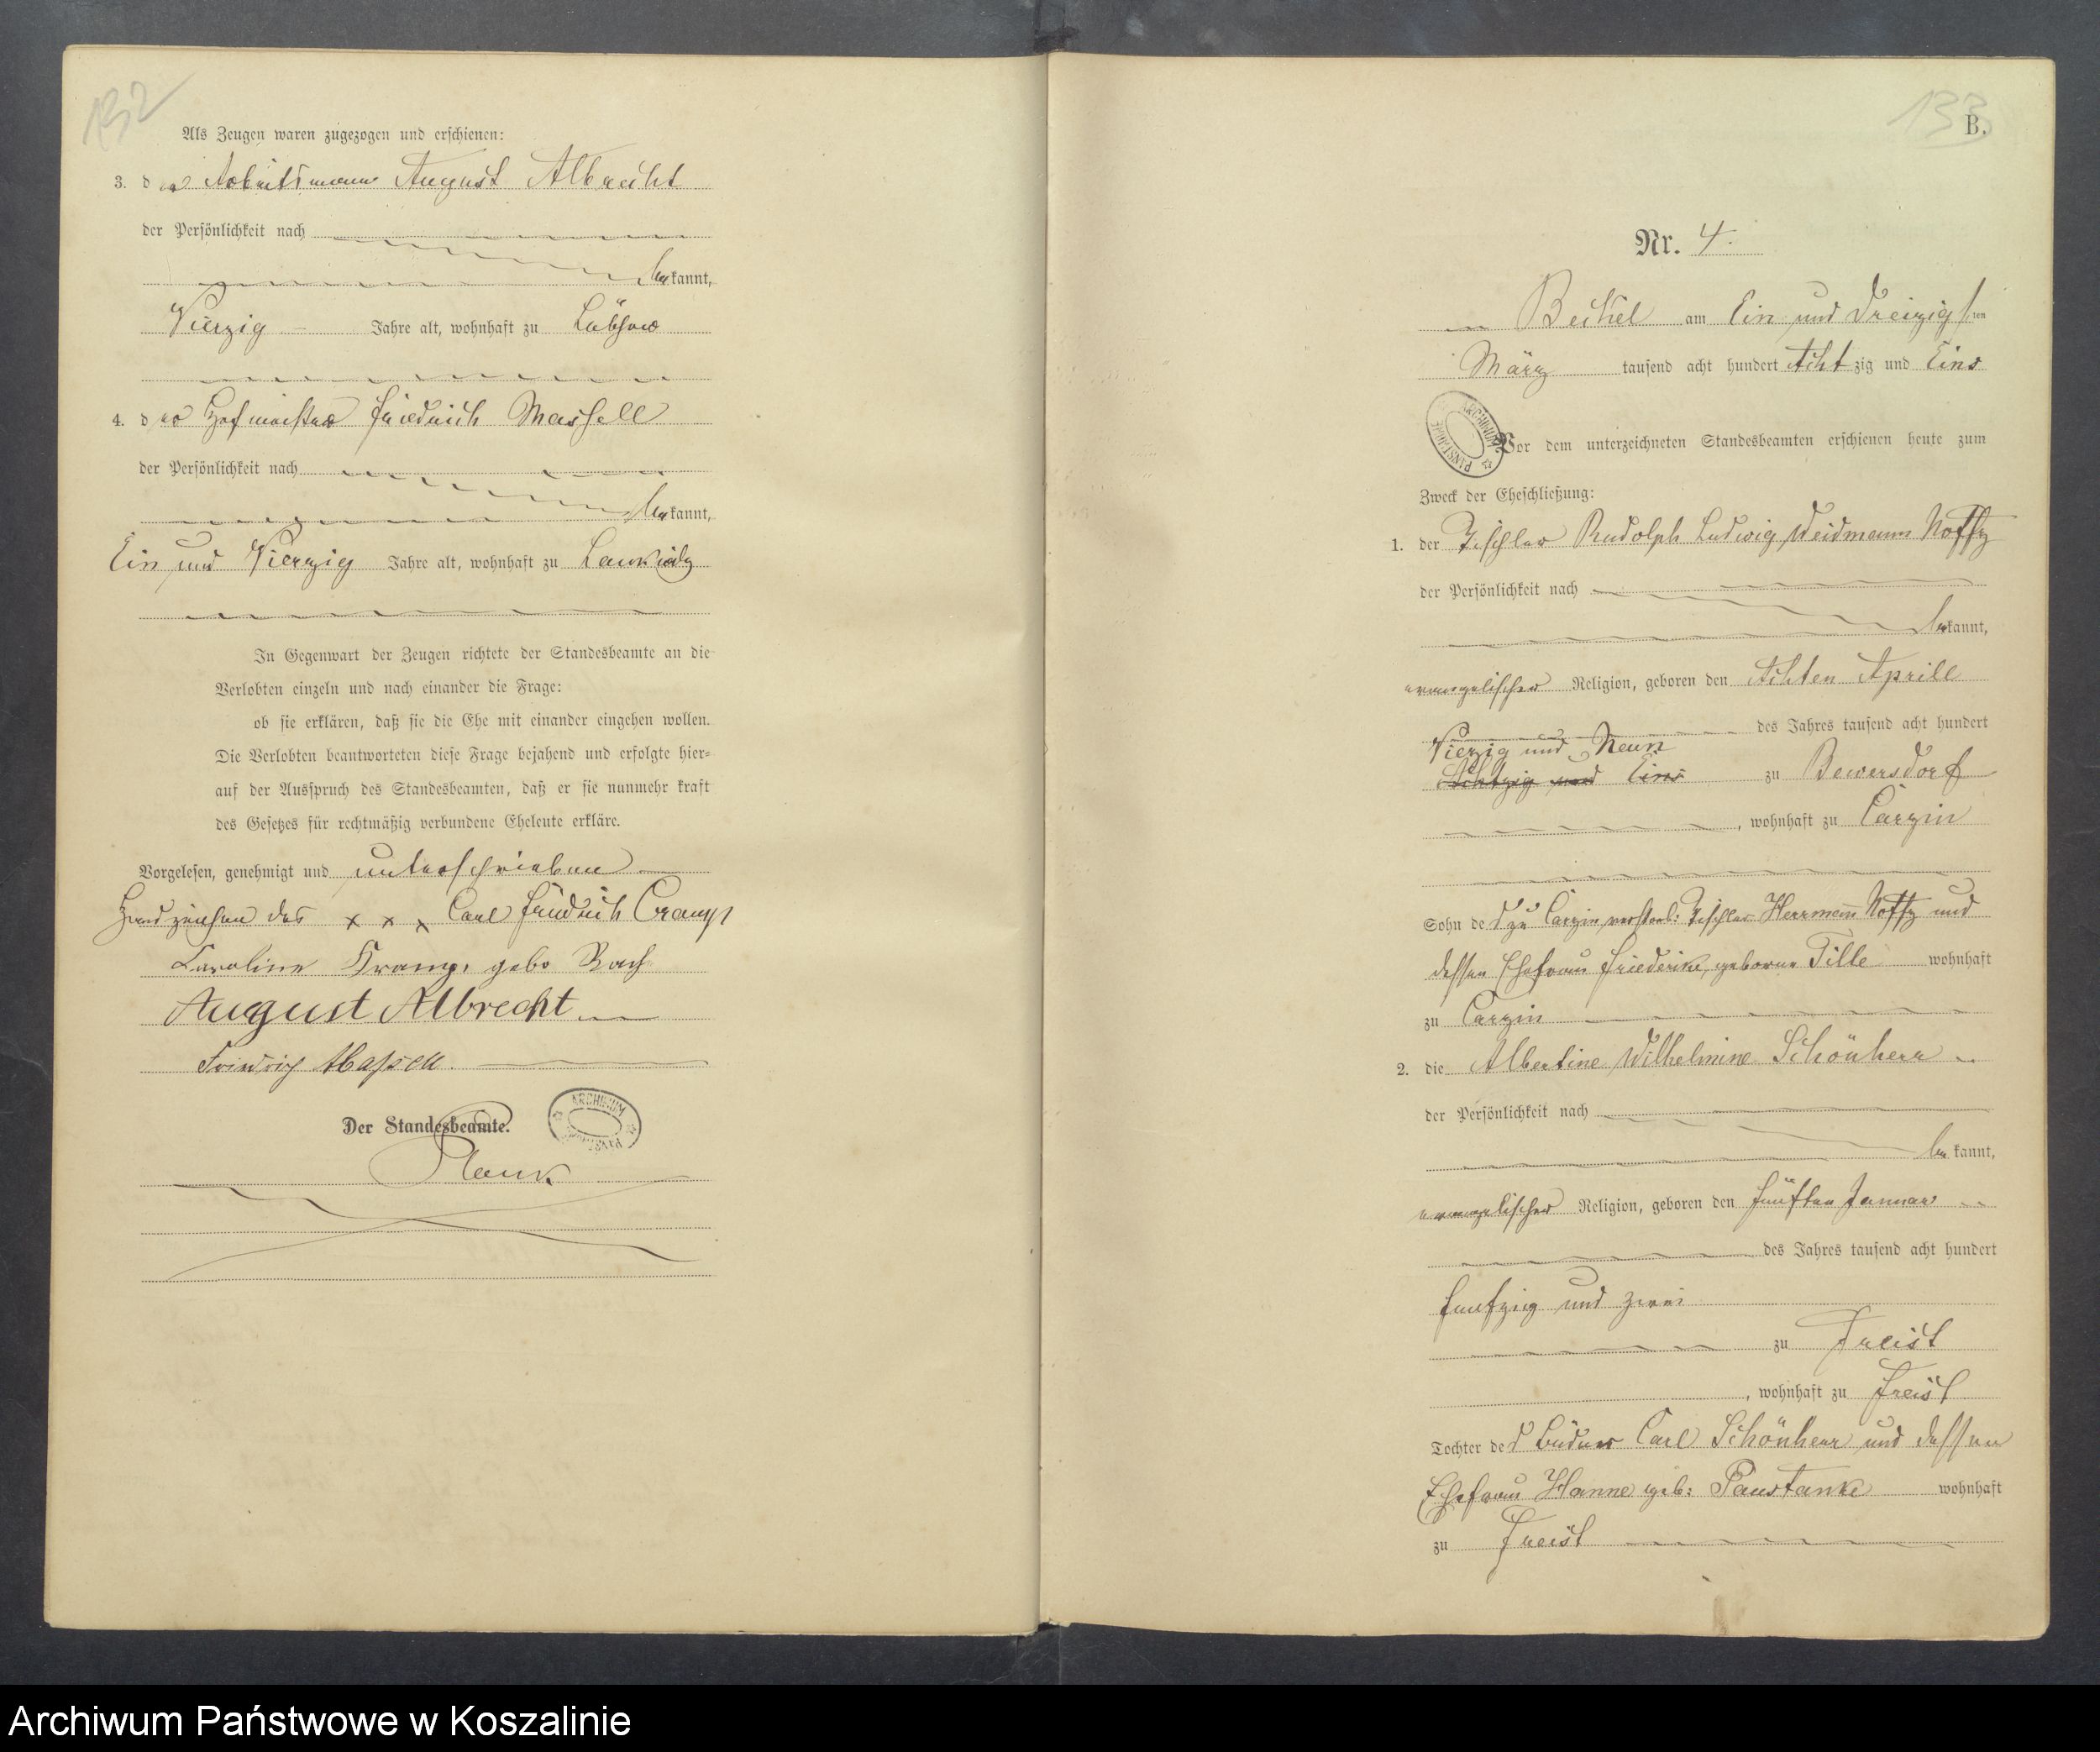 132
Als Zeugen waren zugezogen und erschienen:
3. der Arbeitsmann August Albrecht
der Persönlichkeit nach
bekannt,
Vierzig Jahre alt, wohnhaft zu Lübzow
4. der Hofmeister Friedrich Massell
der Persönlichkeit nach
bekannt,
Ein und Vierzig Jahre alt, wohnhaft zu
In Gegenwart der Zeugen richtete der Standesbeamte an die
Verlobten einzeln und nach einander die Frage:
ob sie erklären, daß sie die Ehe mit einander eingehen wollen.
Die Verlobten beantworteten diese Frage bejahend und erfolgte hier-
auf der Ausspruch des Standesbeamten, daß er sie nunmehr kraft
des Gesetzes für rechtmäßig verbundene Eheleute erkläre.
Vorgelesen, genehmigt und unterschrieben
Handzeichen des x x x Carl Friedrich Cramp
Caroline Kramp, geb Rach
August Albrecht
Friedrich Massell
Der Standesbeamte.
ARCHIWUM
Plank
133
B.
Nr. 4.
Beckel am Ein und Dreizigsten
März tausend acht hundert Achtzig und Eins
ARCHIWUM PAŃSTWOWE
Vor dem unterzeichneten Standesbeamten erschienen heute zum
Zweck der Eheschließung:
1. der Tischler Rudolph Ludwig Weidmann Noffz
der Persönlichkeit nach
bekannt,
evangelischer Religion, geboren den Achten Aprill
des Jahres tausend acht hundert
Vierzig und Neun
Achtzig und Eins zu Bewersdorf
, wohnhaft zu Carzin
Sohn des zu Carzin verstorb: Tischler Herrmann Noffz und
dessen Ehefrau Friederike, geborne Tille wohnhaft
zu Carzin
2. die Albertine Wilhelmine Schönherr
der Persönlichkeit nach
bekannt,
evangelischer Religion, geboren den fünften Januar
des Jahres tausend acht hundert
funfzig und zwei
zu Freist
, wohnhaft zu Freist
Tochter des Büdner Carl Schönherr und dessen
Ehefrau Hanne geb: Paustanke wohnhaft
zu Freist
Archiwum Państwowe w Koszalinie